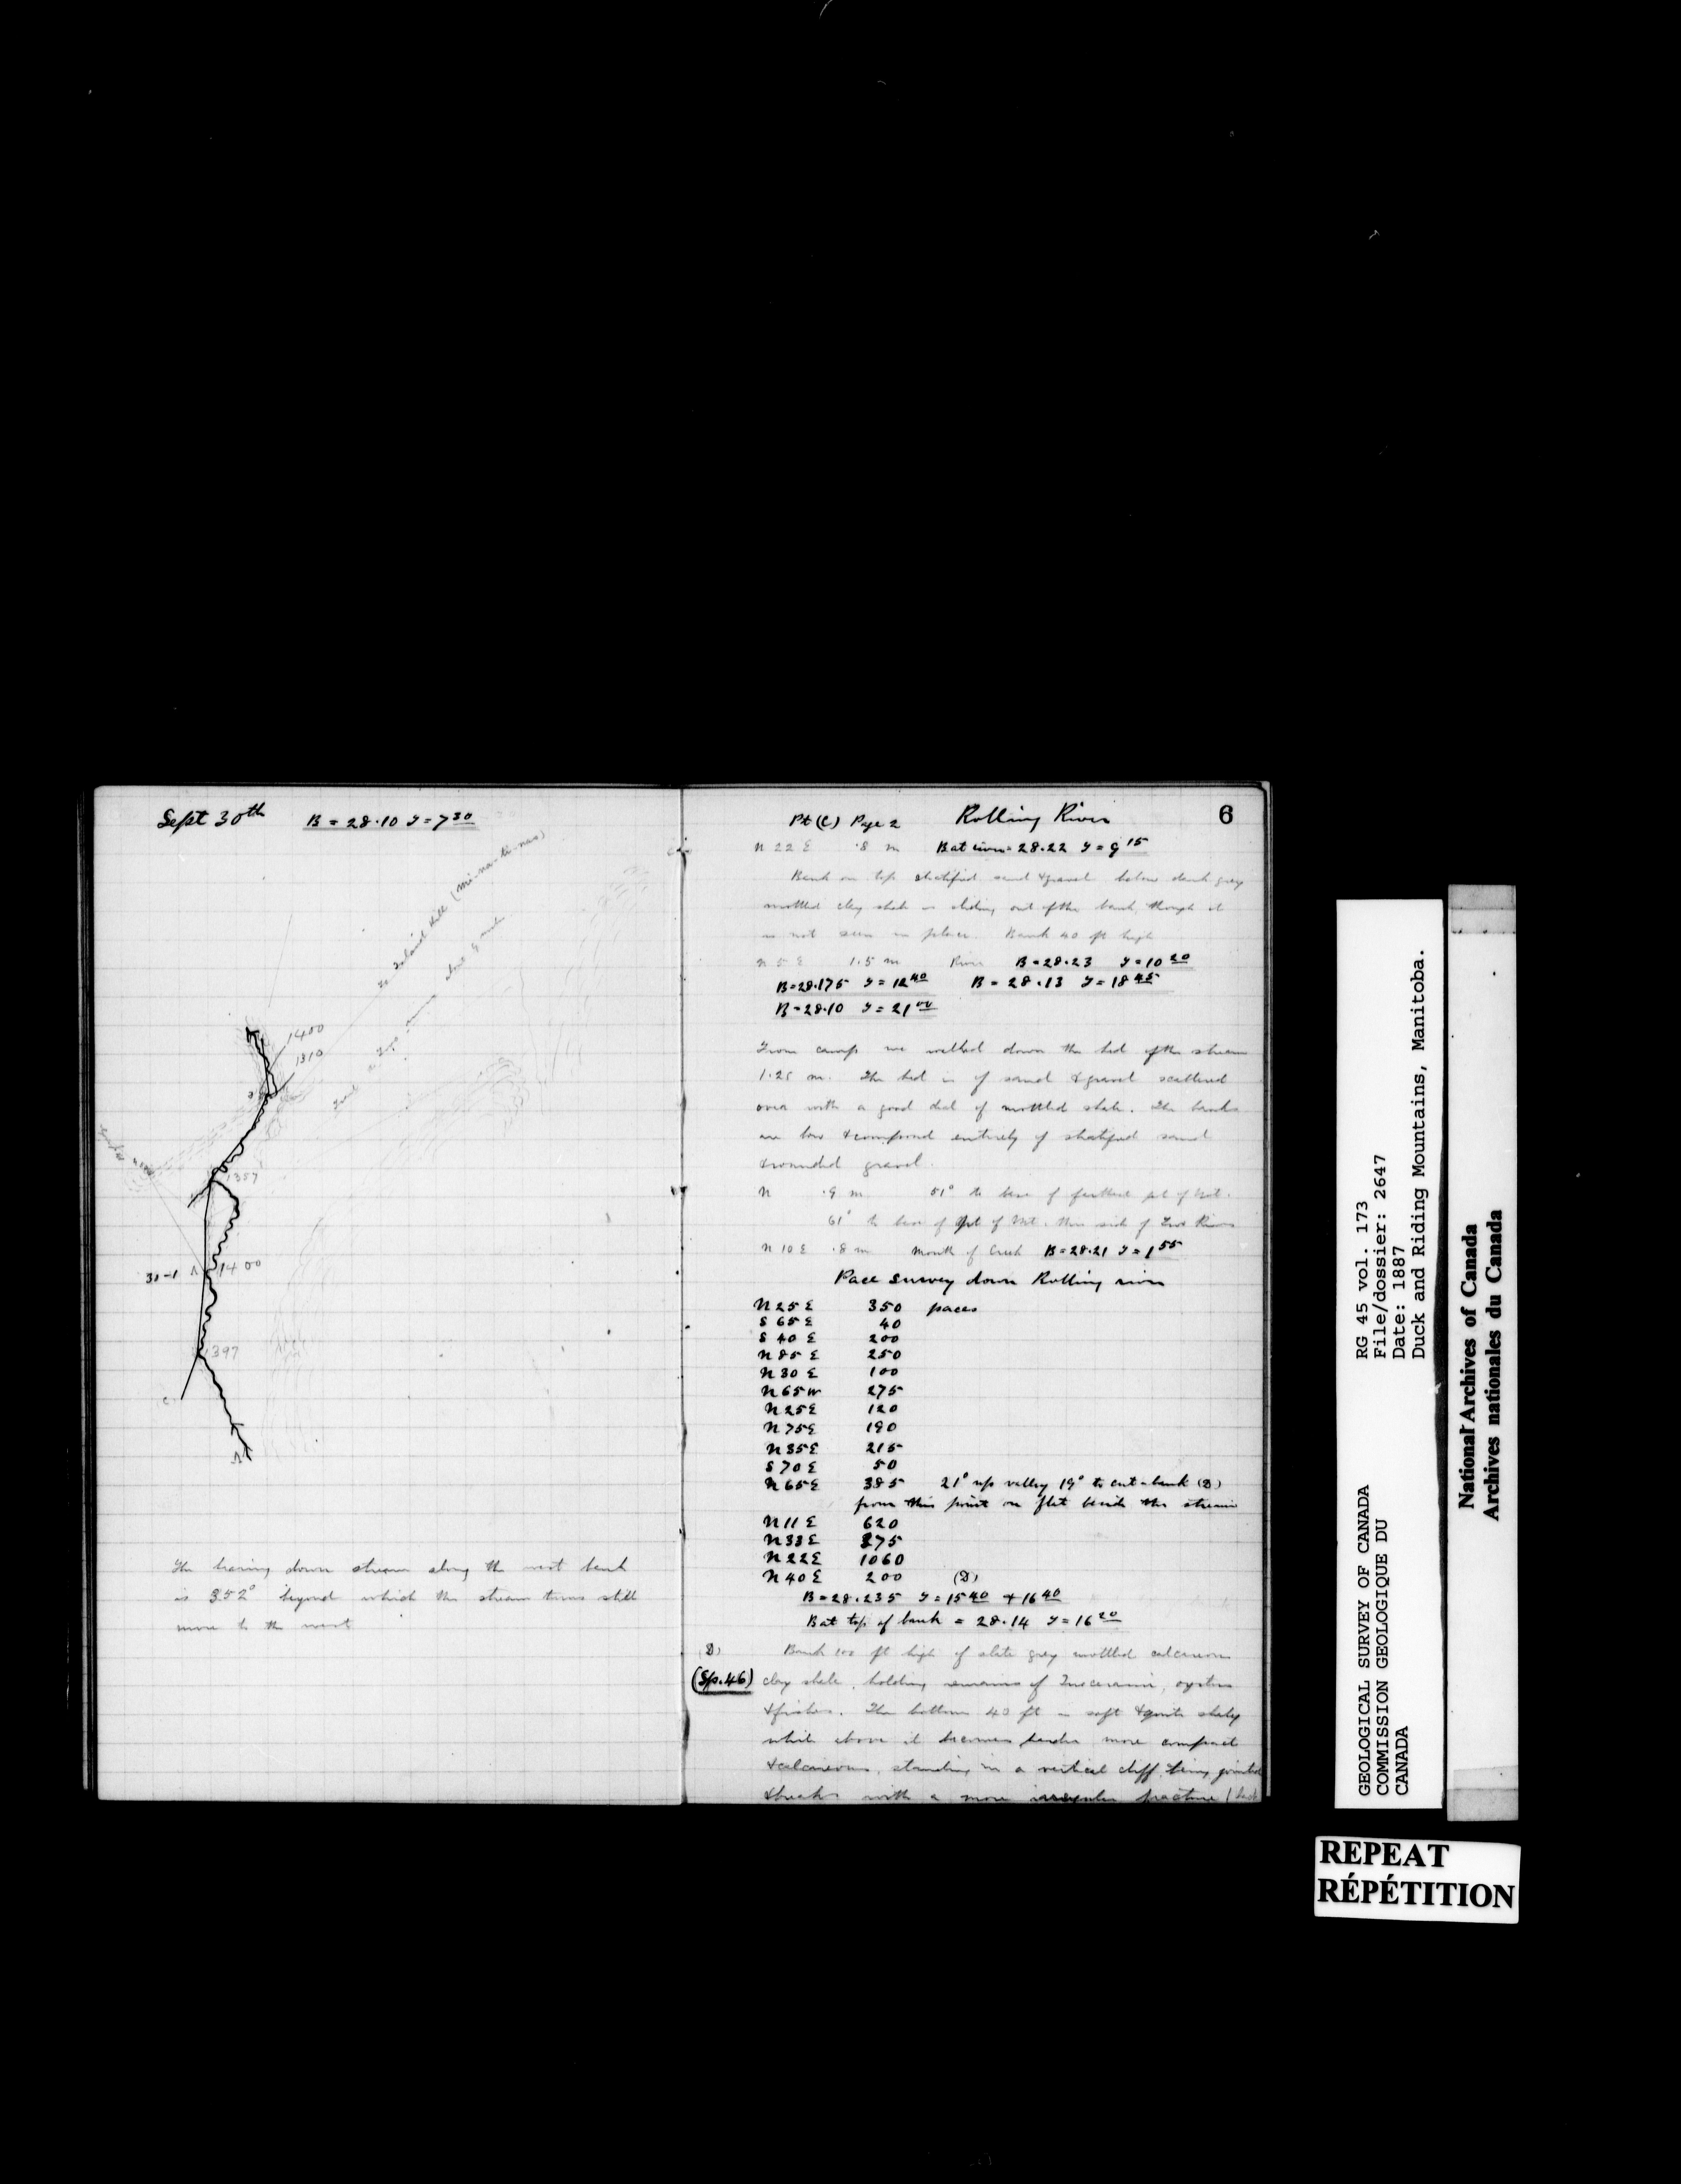 Sept 30th B = 28.10 T = 7 30
To Island Hill (Mi-na-ti-nas)
1400
1310
1357
1400
30-1
1397
C
The bearing down stream along the west bank
is 352° beyond which the stream turns still
more to the west
Pt (C) Page 2 Rolling River 6
N 22 E .8 m B at river = 28.22 T = 9 15
Bank on top stratified sand & gravel below dark grey
mottled clay shale is sliding out of the bank, though it
is not seen in place. Bank 40 ft high
N 5 E 1.5 m River B = 28.23 T = 10 20
B = 28.175 T = 12 40 B = 28.13 T = 18 45
B = 28.10 T = 21 00
From camp we walked down the bed of the stream
1.25 m. The bed is of sand & gravel scattered
over with a good deal of mottled shale. The banks
are low & composed entirely of stratified sand
& rounded gravel.
N .9 m 51° to base of farthest pt of Mt.
61° to base of pt of Mt. this side of River
N 10 E .8 m Mouth of Creek B = 28.21 T = 1 55
Pace survey down Rolling river
N 25 E 350 paces
S 65 E 40
S 40 E 200
N 85 E 250
N 30 E 100
N 65 W 275
N 25 E 120
N 75 E 190
N 35 E 215
S 70 E 50
N 65 E 385 21° up valley 19° to cut-bank (D)
from this point on flat beside the stream
N 11 E 620
N 33 E 275
N 22 E 1060
N 40 E 200 (D)
B = 28.235 T = 15 40 & 16 40
B at top of bank = 28.14 T = 16 20
(D) Bank 100 ft high of slate grey mottled calcareous
(Sp. 46) clay shale, holding remains of Inocerami, oysters
& fishes. The bottom 40 ft is soft & quite shaly
while above it becomes harder more compact
& calcareous, standing in a vertical cliff, being jointed
& breaks with a more irregular fracture
GEOLOGICAL SURVEY OF CANADA
COMMISSION GEOLOGIQUE DU
CANADA
RG 45 vol. 173
File/dossier: 2647
Date: 1887
Duck and Riding Mountains, Manitoba.
National Archives of Canada
Archives nationales du Canada
REPEAT
RÉPÉTITION